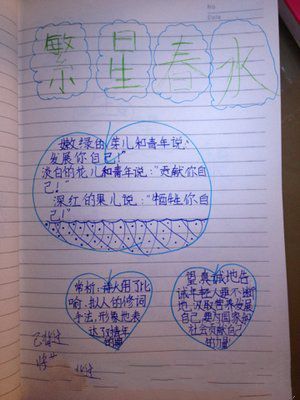 No
Date
繁星春水
嫩绿的芽儿和青年说:
发展你自己!"
淡白的花儿和青年说:"贡献你自
己!"
深红的果儿说:"牺牲你自
己!"
赏析:诗人用了比
喻、拟人的修词
手法,形象地表
达了对青年
的
望真诚地告
诫年轻人要不断
地汲取营养发展
自己,要为国家和
社会贡献自己
的力量